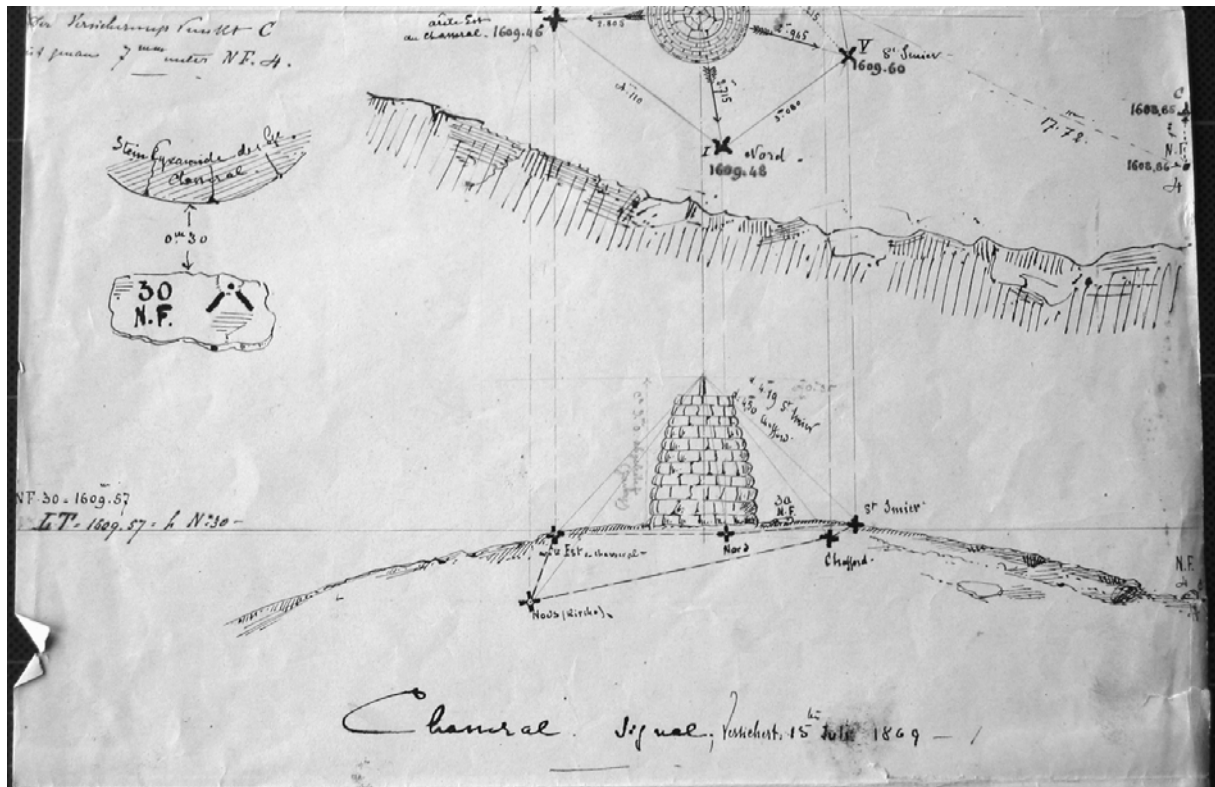 Der Versicherungs Punkt C
ist genau 7 mm unter NF. 4.
arête Est
du Chasseral. 1609.46
I
2.805
2m.965
V St Imier
1609.60
4m.110
2m.715
3m.080
I Nord.
1609.48
17m.72
C
1608,65
N.F.
1608,86
4
Stein Pyramide des Sig.
Chasseral.
0m.30
30
N.F.
4m.19 St Imier
4m.50 Chofford.
NF. 30 = 1609.57
LT = 1609,57 = h No 30 -
30
N.F.
St Imier
arête Est du chasseral -
Nord
Chofford.
N.F.
4
Nods (Kirche).
Chasseral. Signal, Versichert. 15ten Juli 1869 -